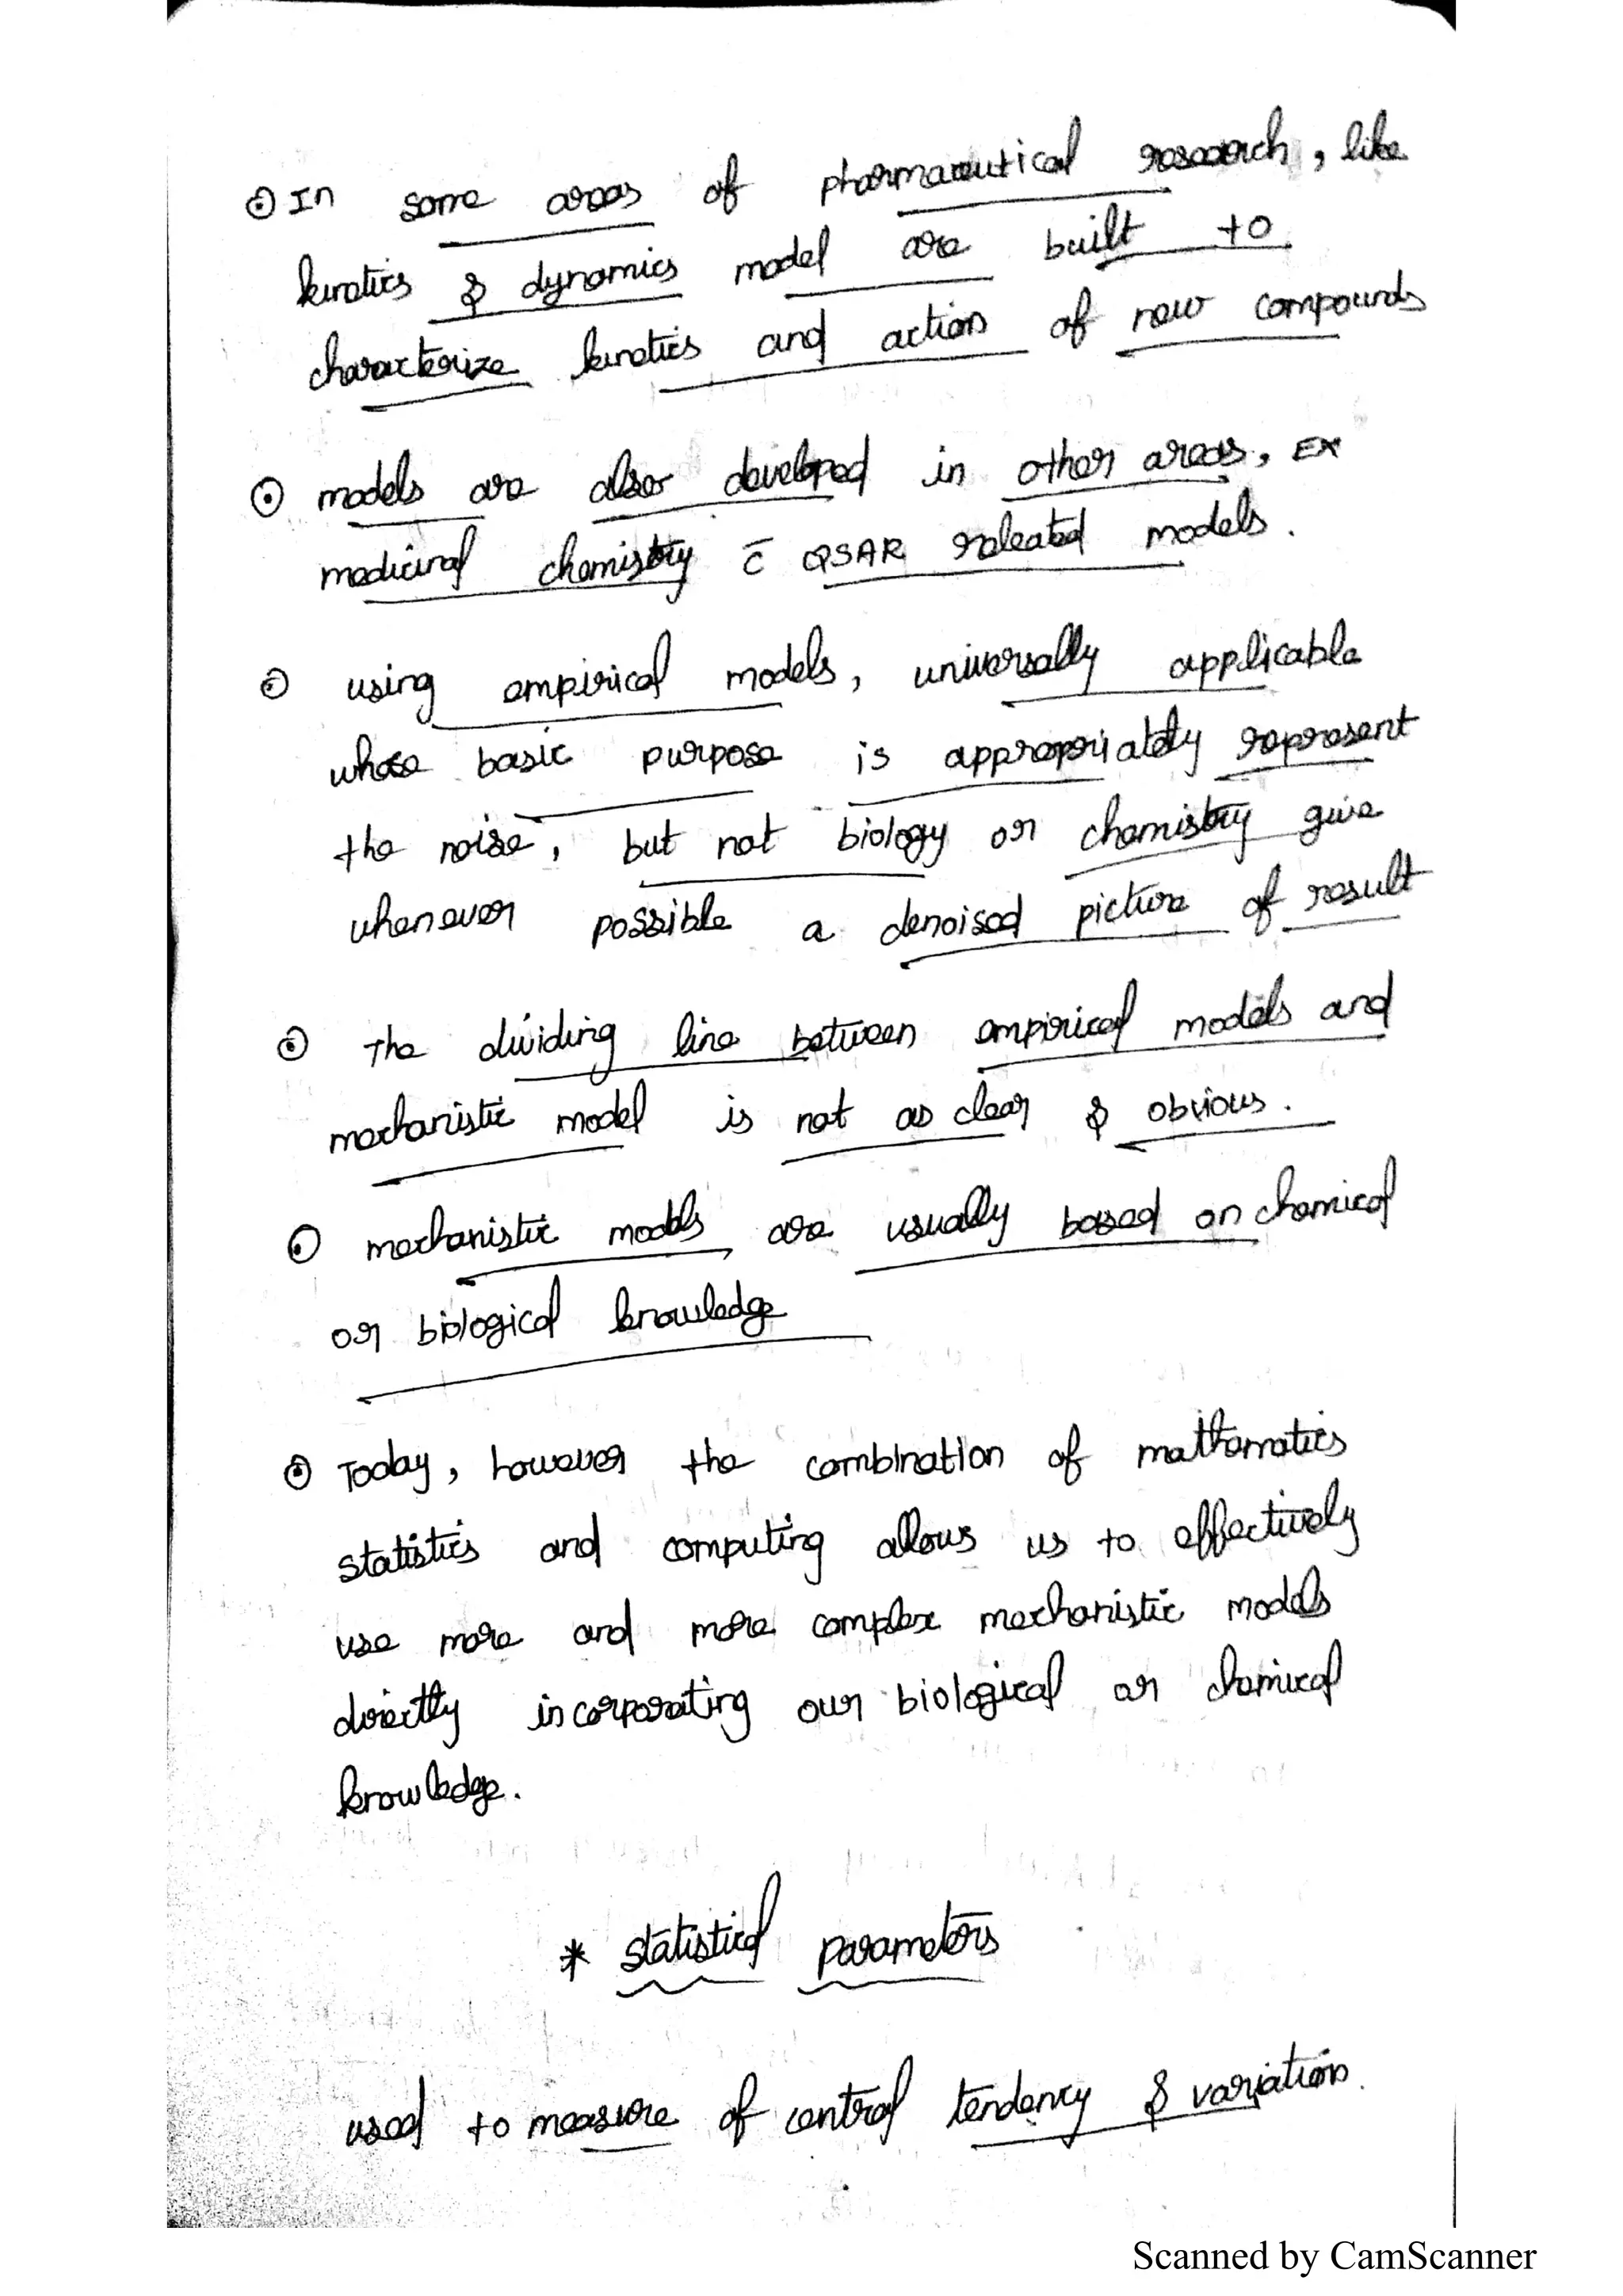 ⊙ In some areas of pharmaceutical research, like
kinetics & dynamics model are built to
characterize kinetics and action of new compounds
⊙ models are also developed in other areas, Ex
medicinal chemistry c̄ QSAR releated models.
⊙ using empirical models, universally applicable
whose basic purpose is appropriately represent
the noise, but not biology or chemistry give
whenever possible a denoised picture of result
⊙ The dividing line between empirical models and
mechanistic model is not as clear & obvious.
⊙ mechanistic models are usually based on chemical
or biological knowledge
⊙ Today, however the combination of mathematics
statistics and computing allows us to effectively
use more and more complex mechanistic models
directly incorporating our biological or chemical
knowledge.
* statistical parameters
used to measure of central tendency & variation.
Scanned by CamScanner